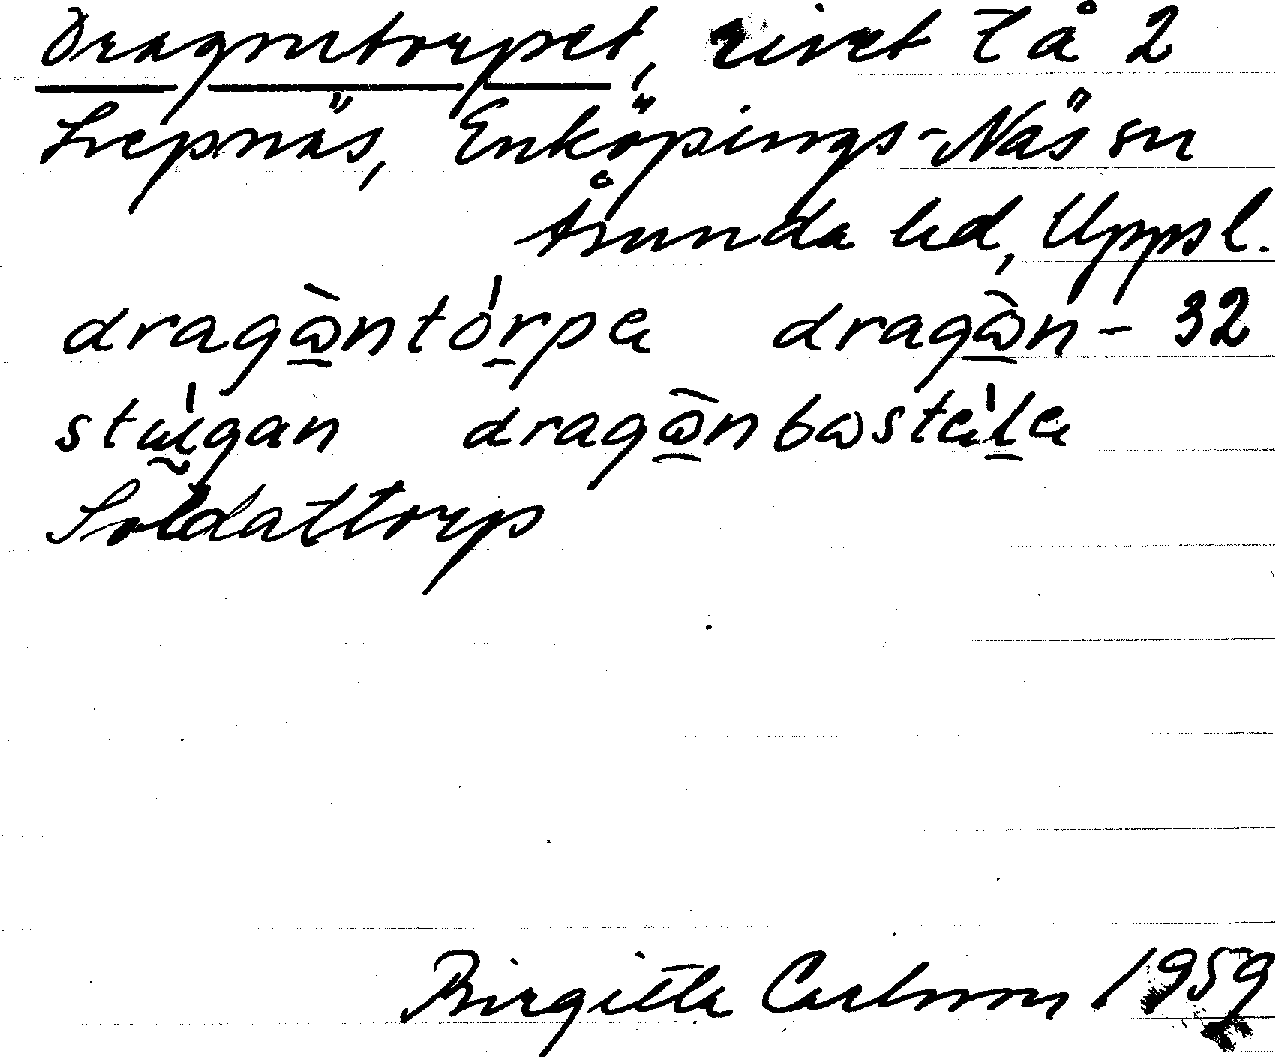 Dragontorpet, rivet t å 2
Lepnäs, Enköpings-Näs sn
Åsunda hd, Uppsl.
dragὼntór̲pa dragὼn- 32
stúgan dragὼnbωstä́l̲a
Soldattorp
Birgitta Carlsson 1959